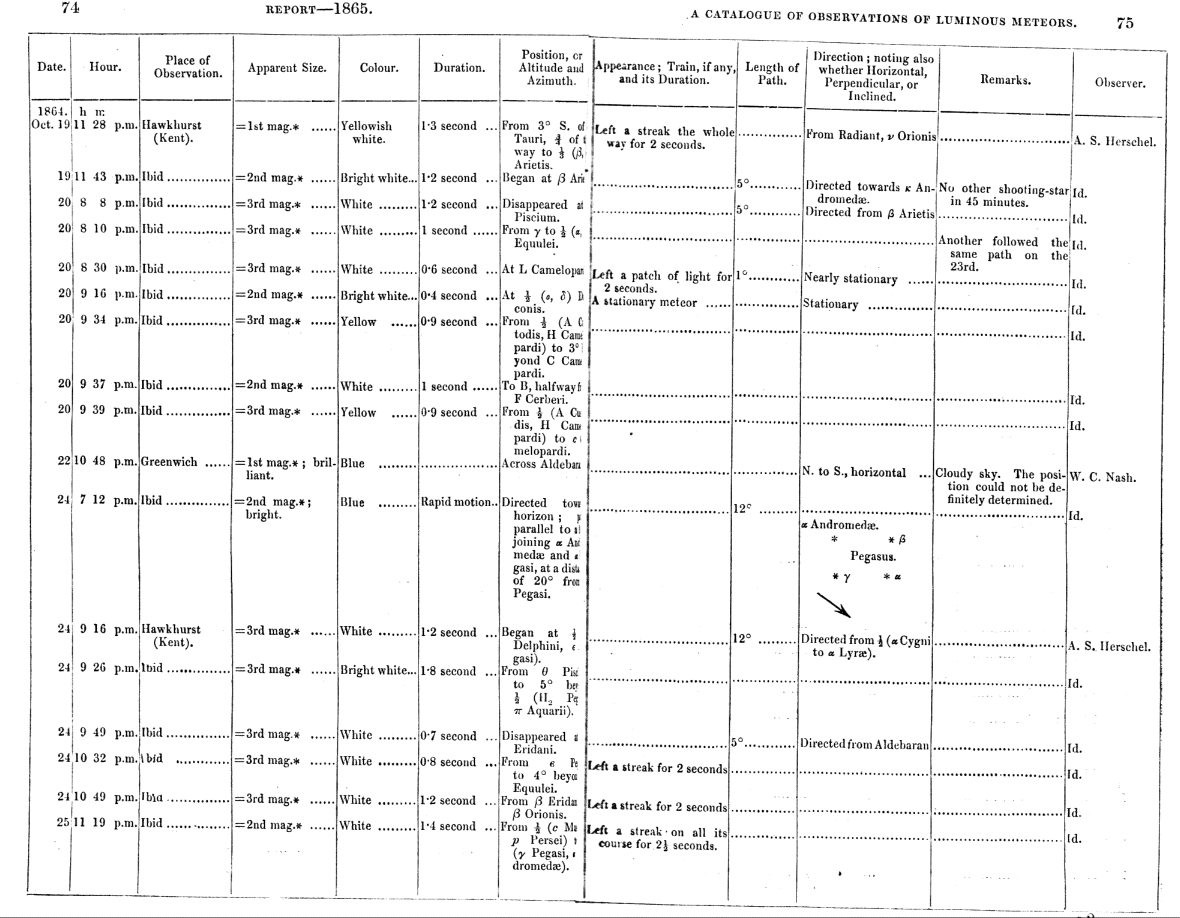 74 REPORT—1865.
A CATALOGUE OF OBSERVATIONS OF LUMINOUS METEORS. 75
Date. Hour. Place of Observation. Apparent Size. Colour. Duration. Position, or Altitude and Azimuth. Appearance; Train, if any, and its Duration. Length of Path. Direction; noting also whether Horizontal, Perpendicular, or Inclined. Remarks. Observer.
1864. h m
Oct. 19 11 28 p.m. Hawkhurst =1st mag.* ...... Yellowish 1·3 second ... From 3° S. of Left a streak the whole ............ From Radiant, ν Orionis ............ A. S. Herschel.
(Kent). white. Tauri, ¾ of way for 2 seconds.
way to ⅓ (β,
Arietis.
19 11 43 p.m. Ibid ............ =2nd mag.* ...... Bright white... 1·2 second ... Began at β ............ 5°............ Directed towards κ An- No other shooting-star Id.
dromedæ. in 45 minutes.
20 8 8 p.m. Ibid ............ =3rd mag.* ...... White ......... 1·2 second ... Disappeared at ............ 5°............ Directed from β Arietis ............ Id.
Piscium.
20 8 10 p.m. Ibid ............ =3rd mag.* ...... White ......... 1 second ...... From γ to ½ (α, ............ ............ ............ Another followed the Id.
Equulei. same path on the
23rd.
20 8 30 p.m. Ibid ............ =3rd mag.* ...... White ......... 0·6 second ... At L Left a patch of light for 1°............ Nearly stationary ...... ............ Id.
2 seconds.
20 9 16 p.m. Ibid ............ =2nd mag.* ...... Bright white... 0·4 second ... At ½ ( , δ) A stationary meteor ...... ............ Stationary ............ ............ Id.
conis.
20 9 34 p.m. Ibid ............ =3rd mag.* ...... Yellow ...... 0·9 second ... From ½ (A ............ ............ ............ ............ Id.
todis, H
pardi) to 3°
yond C
pardi.
20 9 37 p.m. Ibid ............ =2nd mag.* ...... White ......... 1 second ...... To B, halfway ............ ............ ............ ............ Id.
F Cerberi.
20 9 39 p.m. Ibid ............ =3rd mag.* ...... Yellow ...... 0·9 second ... From ½ (A ............ ............ ............ ............ Id.
dis, H
pardi) to c
melopardi.
22 10 48 p.m. Greenwich ...... =1st mag.*; bril- Blue ...... ............ Across ............ ............ N. to S., horizontal ... Cloudy sky. The posi- W. C. Nash.
liant. tion could not be de-
finitely determined.
24 7 12 p.m. Ibid ............ =2nd mag.*; Blue ...... Rapid motion.. Directed ............ 12° ............ ............ Id.
bright. horizon;
parallel to
joining α
medæ and
gasi, at a
of 20°
Pegasi.
α Andromedæ.
* * β
Pegasus.
* γ * α
24 9 16 p.m. Hawkhurst =3rd mag.* ...... White ......... 1·2 second ... Began at ½ ............ 12° ......... Directed from ½ (α Cygni ............ A. S. Herschel.
(Kent). Delphini, to α Lyræ).
gasi).
24 9 26 p.m. Ibid ............ =3rd mag.* ...... Bright white... 1·8 second ... From θ ............ ............ ............ ............ Id.
to 5°
½ (H₂
π Aquarii).
24 9 49 p.m. Ibid ............ =3rd mag.* ...... White ......... 0·7 second ... Disappeared ............ 5°............ Directed from Aldebaran ............ Id.
Eridani.
24 10 32 p.m. Ibid ......... =3rd mag.* ...... White ......... 0·8 second ... From Left a streak for 2 seconds ............ ............ ............ Id.
to 4°
Equulei.
24 10 49 p.m. Ibid ............ =3rd mag.* ...... White ......... 1·2 second ... From β Left a streak for 2 seconds ............ ............ ............ Id.
β Orionis.
25 11 19 p.m. Ibid ............ =2nd mag.* ...... White ......... 1·4 second ... From ½ (c Left a streak on all its ............ ............ ............ Id.
p Persei) course for 2½ seconds.
(γ Pegasi,
dromedæ).